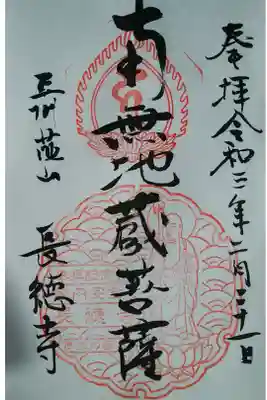 奉拝令和三年二月二十一日
南無地蔵菩薩
三州
長徳寺